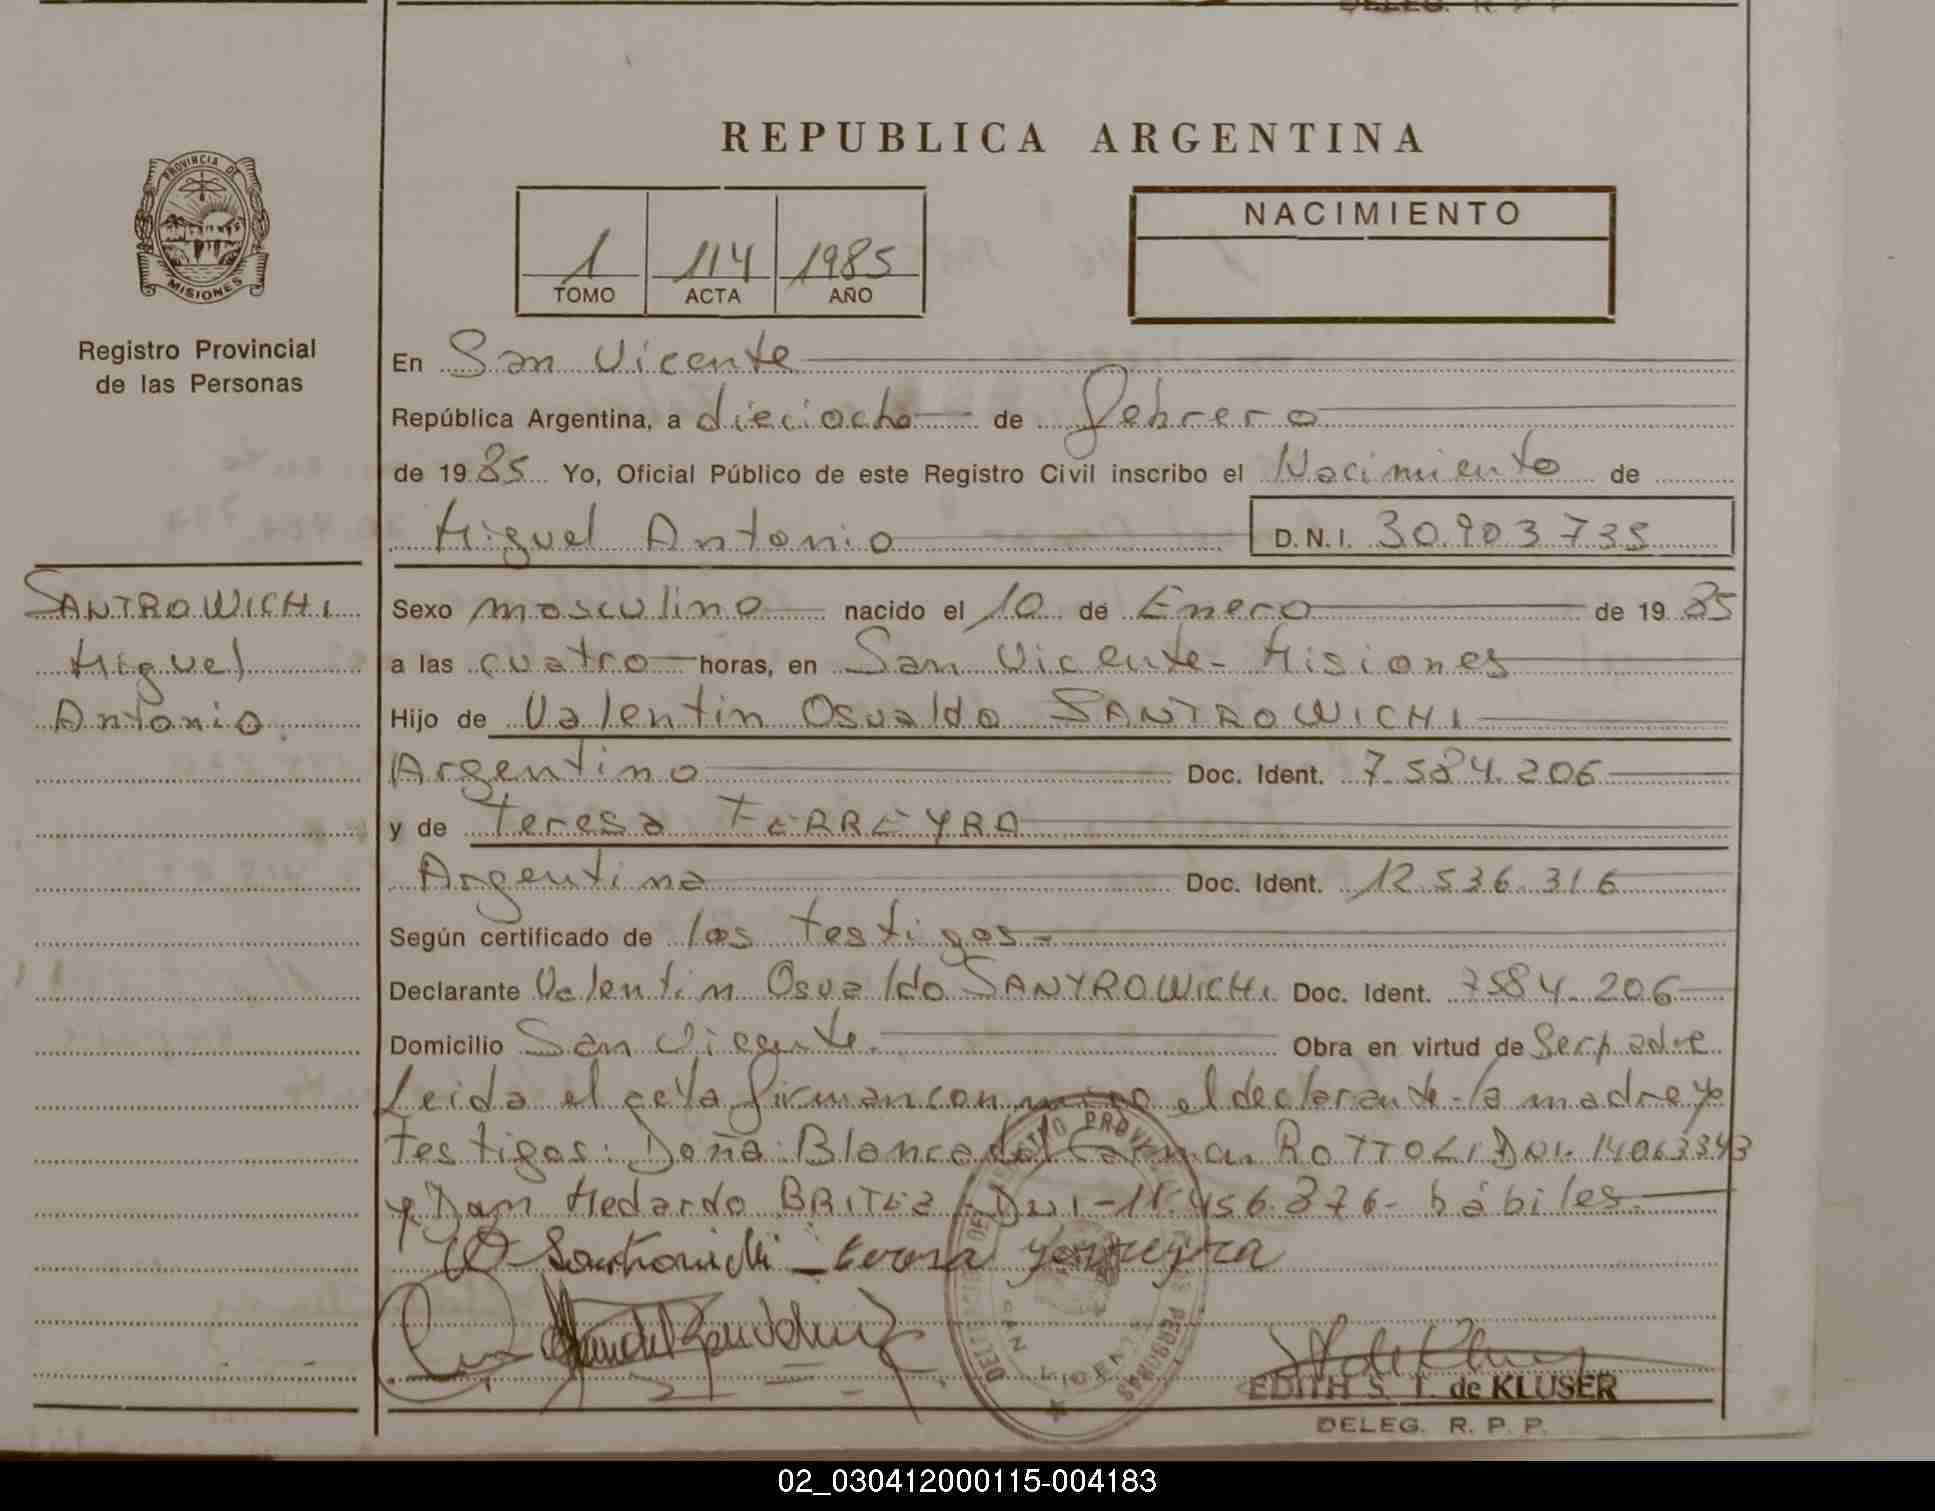 DELEG. R. P. P.
REPUBLICA ARGENTINA
PROVINCIA DE
MISIONES
Registro Provincial
de las Personas
1 114 1985
TOMO ACTA AÑO
NACIMIENTO
En San Vicente
República Argentina, a dieciocho de febrero
de 1985 Yo, Oficial Público de este Registro Civil inscribo el Nacimiento de
Miguel Antonio D.N.I. 30.903.735
SANTROWICHI
Miguel
Antonio
Sexo masculino nacido el 10 de Enero de 1985
a las cuatro horas, en San Vicente - Misiones
Hijo de Valentin Osvaldo SANTROWICHI
Argentino Doc. Ident. 7.584.206
y de Teresa FERREYRA
Argentina Doc. Ident. 12.536.316
Según certificado de los testigos -
Declarante Valentin Osvaldo SANTROWICHI Doc. Ident. 7584.206
Domicilio San Vicente. Obra en virtud de Ser padre
Leida el acta firman conmigo el declarante - la madre y
testigos: Doña Blanca del Carmen ROTTOLI DNI. 14063343
y Don Medardo BRITEZ - DNI - 11.456.876 - hábiles.
Ferreyra
SAN VICENTE
EDITH S. T. de KLUSER
DELEG. R. P. P.
02_030412000115-004183